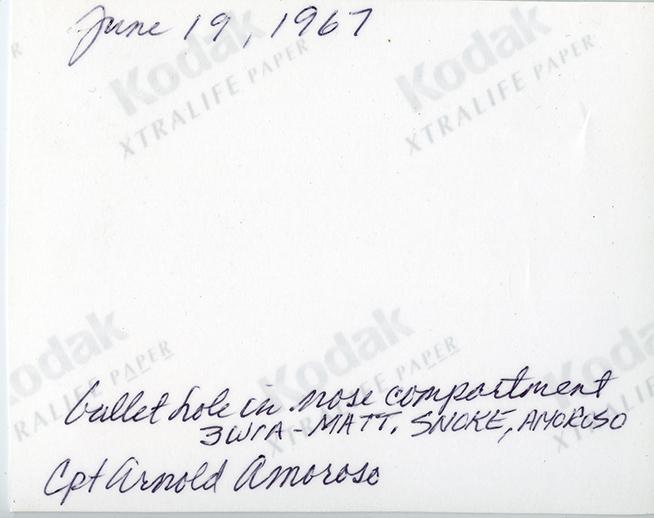 June 19, 1967
Kodak Kodak
XTRALIFE PAPER XTRALIFE PAPER
Kodak Kodak
XTRALIFE PAPER
bullet hole in nose compartment
3 WIA - MATT, SNOKE, AMOROSO
Cpt Arnold Amoroso